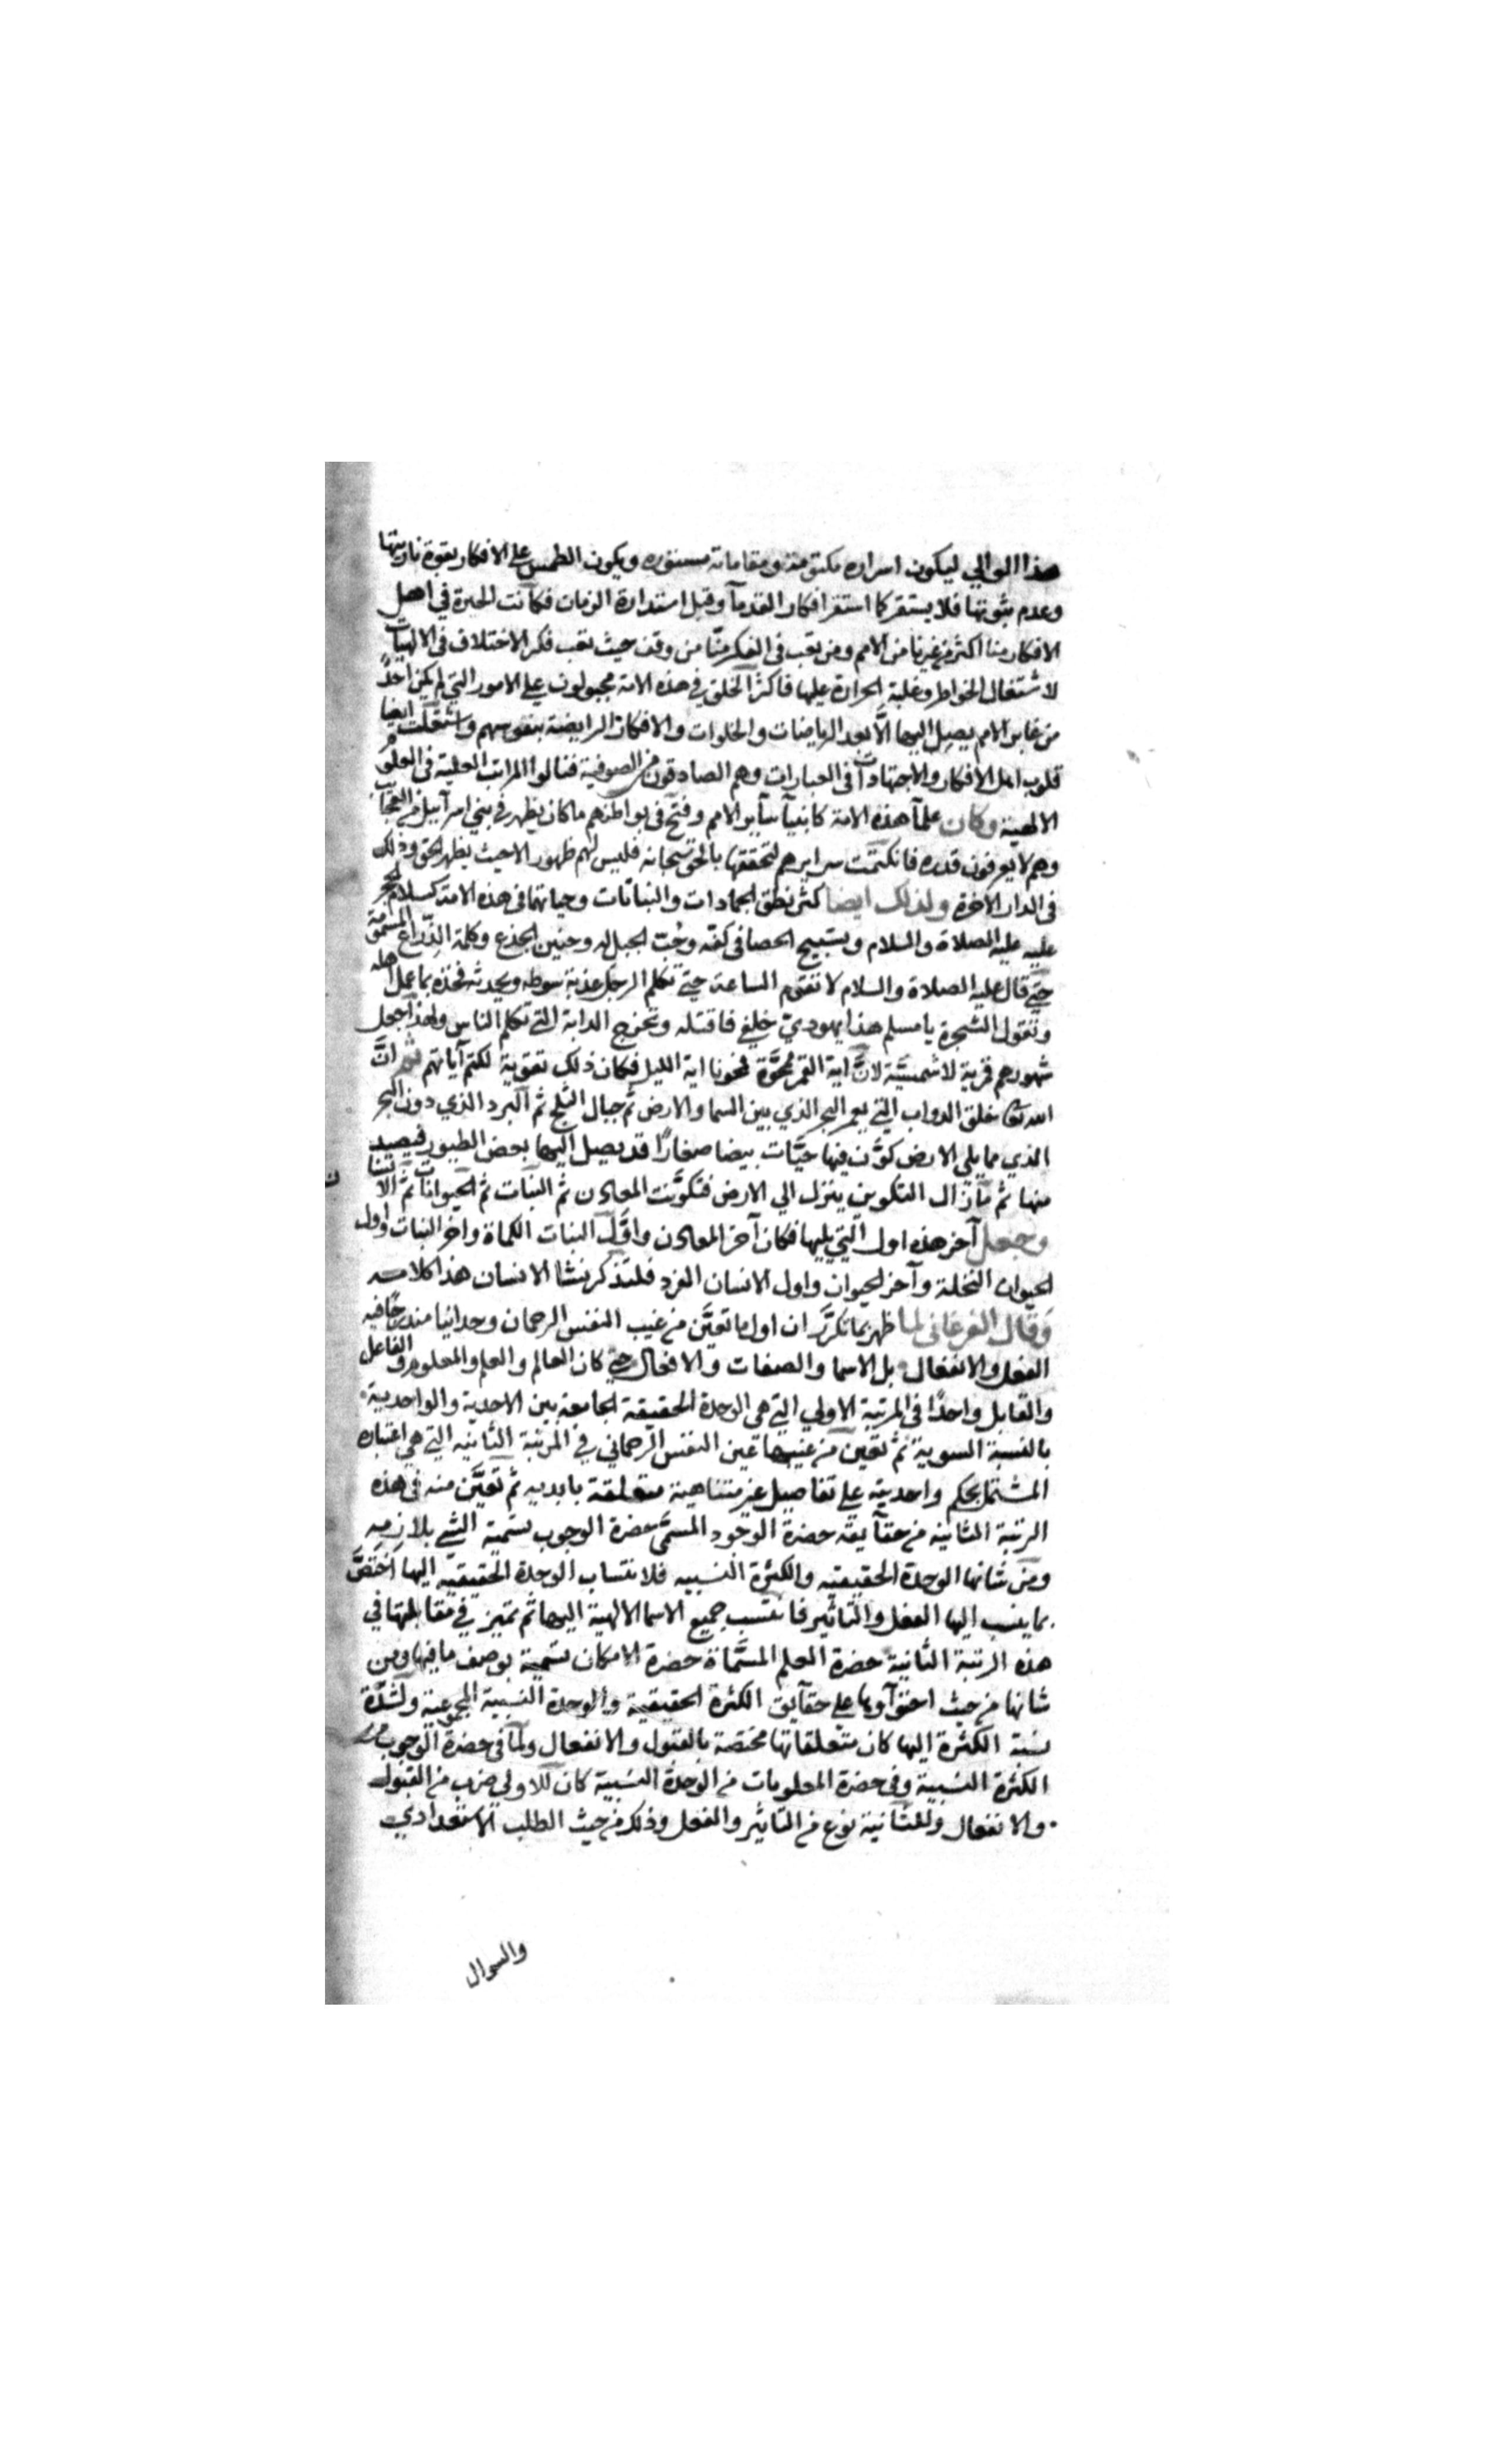 هذا الوالي ليكون اسراره مكتومة ومقاماته مستوره ويكون الطمس على الافكار بقوة ناريتها
وعدم ثبوتها فلا يستقر كما استقر افكار القدمآ وقبل استدارة الزمان فكانت الحيرة في اهل
الافكار منا اكثر من غيرنا من الامم ومن تعب في الفكر منّا من وقف حيث تعب فكر الاختلاف في الالهيات
لاشتغال الخواطر وغلبة الحرارة عليها فاكثر الخلق في هذه الامة مجبولون على الامور التي لم يكن احدٌ
من غابر الامم يصل اليها الَّا بعد الرياضات والخلوات والافكار الرايضة بنفوسهم واشتغلت ايضا
قلوب اهل الافكار والاجتهادات في العبارات وهم الصادقون من الصوفية فنالوا المراتب العلية في العلوم
الالهية وكان علمآ هذه الامة كانبيآ سآير الامم وفتح في بواطنهم ما كان يظهر في بني اسرآييل من العجايب
وهم لا يعرفون قدره فانكتمت سرايرهم لتحققها بالحق سبحانه فليس لهم ظهور الا حيث يظهر الحق وذلك
في الدار الاخرة ولذلك ايضا كثر نطق الجمادات والنباتات وحياتها في هذه الامة كسلام الحجر
عليه عليه الصلاة والسلام وبتسبيح الحصا في كفّه وحُبّ الجبل له وحنين الجذع وكلمة الذراع المسمومة
حتى قال عليه الصلاة والسلام لا تقوم الساعة حتى تكلم الرجل عذبة سوطه ويحدثه فخذه بما عمل اهله
وتقول الشجرة يا مسلم هذا يهودي خلفي فاقتله وتخرج الدابة التي تكلم الناس ولهذا جعل
شهورهم قمرية لا شمسيّة لانَّ اية القمر ممحوَّة فمحونا اية الليل فكان ذلك تقوية لكتم آياتهم ثم انَّ
الله تعالى خلق الدواب التي يعمر البحر الذي بين السما والارض ثم جبال الثلج ثم البرد الذي دون البحر
الذي مما يلي الارض كوَّن فيها حيَّات بيضا صغارًا قد يصل اليها بعض الطيور فيصيد
منها ثم مآزال التكوين ينزل الي الارض فتكوَّنت المعادن ثم النبات ثم الحيوانات ثم الانسان
وجعل آخر هذه اول التي يليها فكان آخر المعادن واوَّل النبات الكماة واخر النبات واول
الحيوان النخلة وآخر الحيوان واول الانسان القرد فلنذكر نشا الانسان هذا كلامه
وقال الفرغاني لما ظهر بما تكرَّر ان اول ما تعيَّن من غيب النفس الرحمان وحدانيا مندرجًا فيه
الفعل والانفعال بل الاسما والصفات والافعال حتى كان العالم والعلم والمعلوم والفاعل
والقابل واحدًا في المرتبة الاولي التي هي الوحدة الحقيقية الجامعة بين الاحدية والواحدية
بالنسبة السوية ثم تعين من غيبها عين النفس الرحماني في المرتبة الثانيه التي هي اعتباره
المشتمل بحكم واحديته علي تفاصيل غير متناهية متعلقة بابديه ثم تعيَّن منه في هذه
الرتبة الثانيه من حقآيقه حضرة الوجود المسمَّى حضرة الوجوب تسمية الشي بلازمه
ومن شانها الوحدة الحقيقيه والكثرة النسبيه فلانتساب الوحدة الحقيقيه اليها اختصَّ
بما ينسب اليها الفعل والتاثير فانتسب جميع الاسما الالهية اليها ثم تميز في مقابلتها في
هذه الرتبة الثانية حضرة العلم المسمَّاة حضرة الامكان تسمية بوصف ما فيها ومن
شانها من حيث احتوآوها على حقآيق الكثرة الحقيقية والوحدة النسبية المجموعية ولشدَّة
نسبة الكثرة اليها كان متعلقاتها مختصة بالقبول والانفعال ولما في حضرة الوجوب من
الكثرة النسبية وفي حضرة المعلومات من الوحدة النسبية كان للاولي ضرب من القبول
والانفعال وللثانية نوع من التاثير والفعل وذلك من حيث الطلب الاستعدادي
والسوال